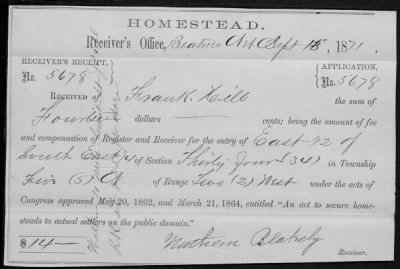 HOMESTEAD.
Receiver's Office, Beatrice Neb Sept 18th, 1871.
RECEIVER'S RECEIPT, No. 5678
APPLICATION, No. 5678
RECEIVED OF Frank Hill the sum of
Fourteen dollars cents; being the amount of fee
and compensation of Register and Receiver for the entry of East 1/2 of
South East 1/4 of Section Thirty four (34) in Township
Five (5) N of Range Two (2) West under the acts of
Congress approved May 20, 1862, and March 21, 1864, entitled "An act to secure home-
steads to actual settlers on the public domain."
$ 14 —
Nathan Blakely
Receiver.